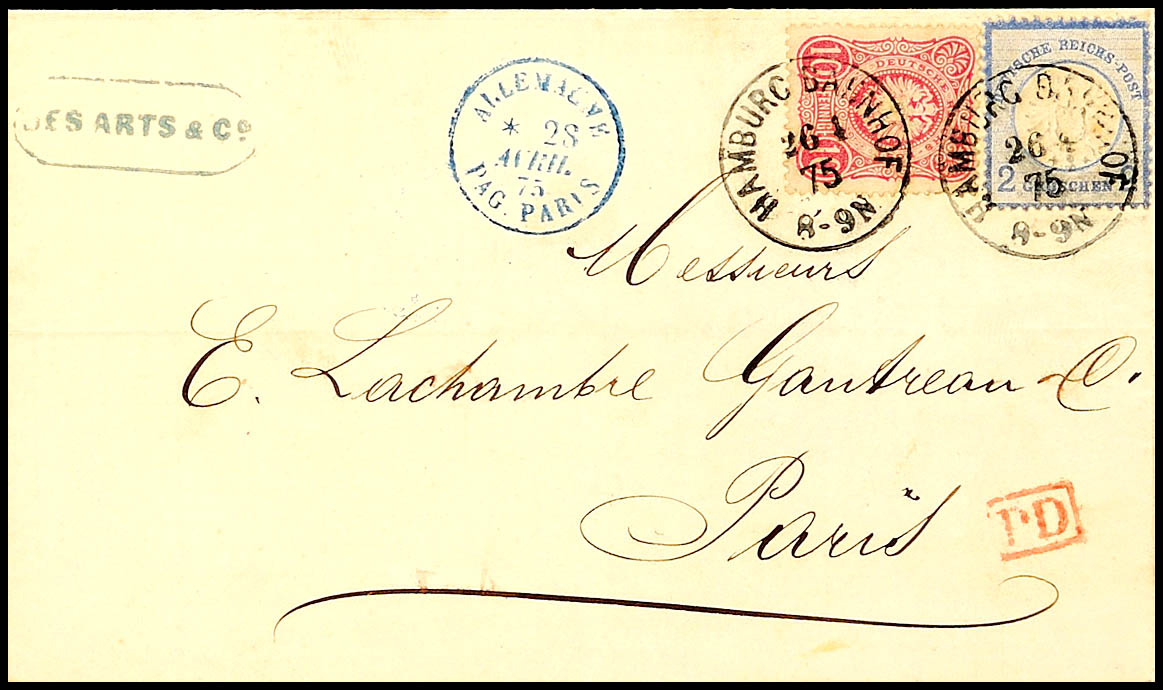 DES ARTS & Co
ALLEMAGNE
* 28
AVRIL
75
PAG. PARIS
10 PFENNIGE 10
DEUTSCHE
HAMBURG BAHNHOF
26 4
75
8-9N
DEUTSCHE REICHS-POST
2 GROSCHEN 2
HAMBURG BAHNHOF
26 4
75
8-9N
Messieurs
E. Lachambre Gautreau & C.
Paris
PD